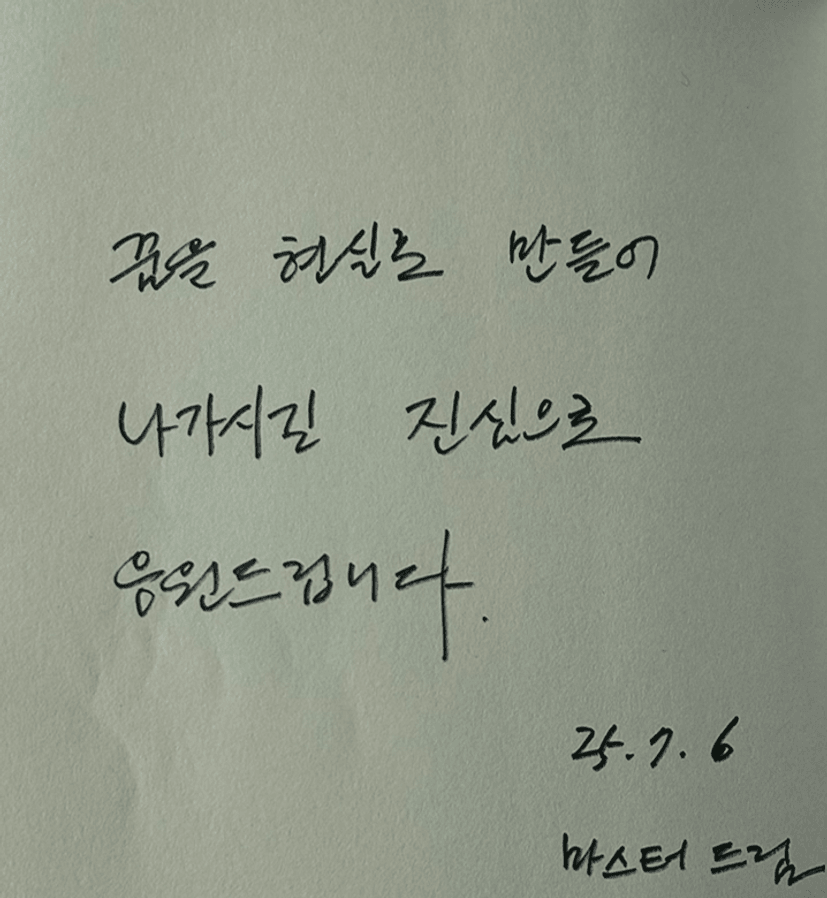 꿈을 현실로 만들어
나가시길 진심으로
응원드립니다.
25.7.6
마스터 드림